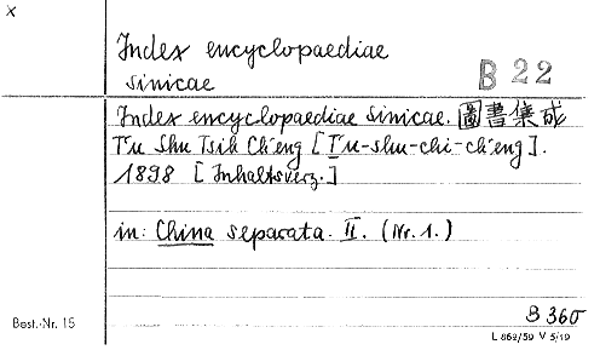 x
Index encyclopaediae
sinicae
B 22
Index encyclopaediae sinicae. 圖書集成
T'u Shu Tsih Ch'eng [T'u-shu-chi-ch'eng].
1898 [Inhaltsverz.]
in: China separata. II. (Nr. 1.)
B 360
Best.-Nr. 15
L 862/59 V 5/19